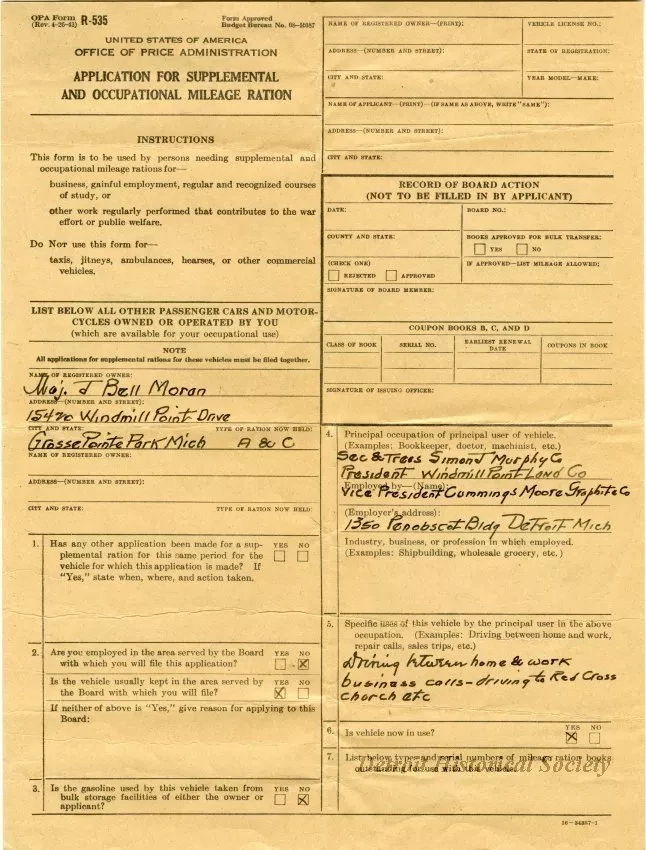 OPA Form R-535
(Rev. 4-26-43)
Form Approved
Budget Bureau No. 08-R087
UNITED STATES OF AMERICA
OFFICE OF PRICE ADMINISTRATION
APPLICATION FOR SUPPLEMENTAL
AND OCCUPATIONAL MILEAGE RATION
INSTRUCTIONS
This form is to be used by persons needing supplemental and
occupational mileage rations for—
business, gainful employment, regular and recognized courses
of study, or
other work regularly performed that contributes to the war
effort or public welfare.
Do NOT use this form for—
taxis, jitneys, ambulances, hearses, or other commercial
vehicles.
LIST BELOW ALL OTHER PASSENGER CARS AND MOTOR-
CYCLES OWNED OR OPERATED BY YOU
(which are available for your occupational use)
NOTE
All applications for supplemental rations for these vehicles must be filed together.
NAME OF REGISTERED OWNER:
Maj. J Bell Moran
ADDRESS—(NUMBER AND STREET):
15420 Windmill Point Drive
CITY AND STATE: TYPE OF RATION NOW HELD:
Grosse Pointe Park Mich A & C
NAME OF REGISTERED OWNER:
ADDRESS—(NUMBER AND STREET):
CITY AND STATE: TYPE OF RATION NOW HELD:
1. Has any other application been made for a sup- YES NO
plemental ration for this same period for the
vehicle for which this application is made? If
"Yes," state when, where, and action taken.
2. Are you employed in the area served by the Board YES NO
with which you will file this application?
Is the vehicle usually kept in the area served by YES NO
the Board with which you will file?
If neither of above is "Yes," give reason for applying to this
Board:
3. Is the gasoline used by this vehicle taken from YES NO
bulk storage facilities of either the owner or
applicant?
NAME OF REGISTERED OWNER—(PRINT): VEHICLE LICENSE NO.:
ADDRESS—(NUMBER AND STREET): STATE OF REGISTRATION:
CITY AND STATE: YEAR MODEL—MAKE:
NAME OF APPLICANT—(PRINT)—(IF SAME AS ABOVE, WRITE "SAME"):
ADDRESS—(NUMBER AND STREET):
CITY AND STATE:
RECORD OF BOARD ACTION
(NOT TO BE FILLED IN BY APPLICANT)
DATE: BOARD NO.:
COUNTY AND STATE: BOOKS APPROVED FOR BULK TRANSFER:
YES NO
(CHECK ONE) IF APPROVED—LIST MILEAGE ALLOWED:
REJECTED APPROVED
SIGNATURE OF BOARD MEMBER:
COUPON BOOKS B, C, AND D
CLASS OF BOOK SERIAL NO. EARLIEST RENEWAL DATE COUPONS IN BOOK
SIGNATURE OF ISSUING OFFICER:
4. Principal occupation of principal user of vehicle.
(Examples: Bookkeeper, doctor, machinist, etc.)
Sec & Treas Simond Murphy Co
President Windmill Point Land Co
Employed by—(Name):
Vice President Cummings Moore Graphite Co
(Employer's address):
1350 Penobscot Bldg Detroit Mich
Industry, business, or profession in which employed.
(Examples: Shipbuilding, wholesale grocery, etc.)
5. Specific uses of this vehicle by the principal user in the above
occupation. (Examples: Driving between home and work,
repair calls, sales trips, etc.)
Driving between home & work
business calls - driving to Red Cross
church etc
6. Is vehicle now in use? YES NO
7. List below types and serial numbers of mileage ration books
outstanding for use with this vehicle.
Detroit Historical Society